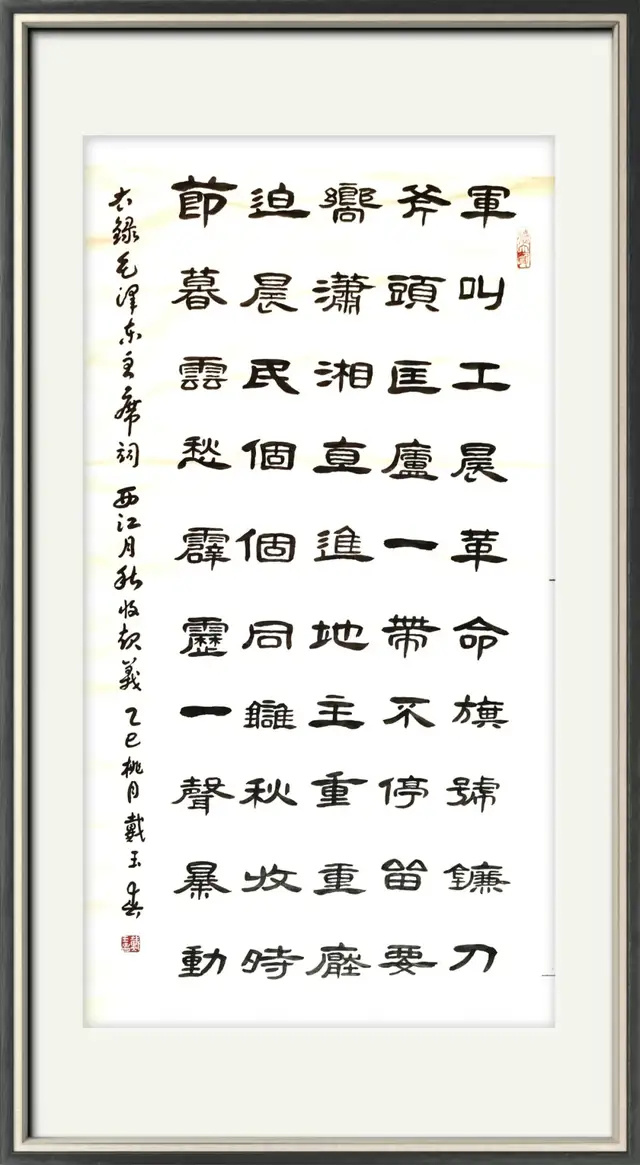 軍叫工晨革命旗號鐮刀
斧頭匡廬一帶不停留要
嚮瀟湘直進地主重重壓
迫晨民個個同讎秋收時
節暮雲愁霹靂一聲暴動
右錄毛泽东主席詞 西江月秋收起義 乙巳桃月戴玉春